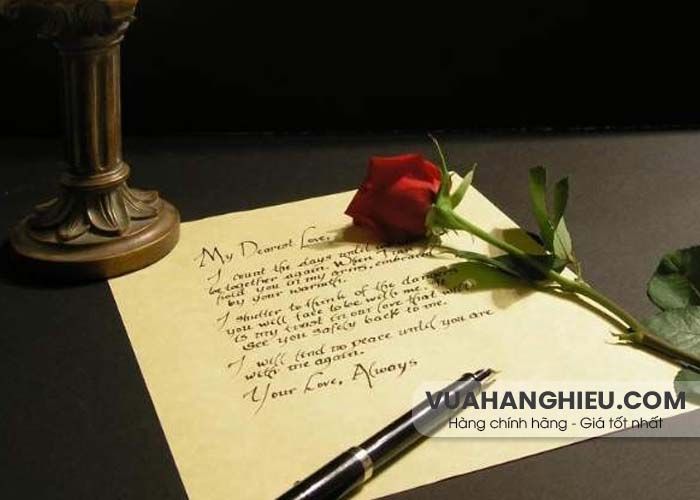 My Dearest Love,
I count the days until
be together again. When I
hold you in my arms, embraced
by your warmth.
I shutter to think of the
you will face to be with me
is my trust in our love that will
see you safely back to me.
I will find no peace until you are
with me again.
Your Love, Always
VUAHANGHIEU.COM
Hàng chính hãng - Giá tốt nhất